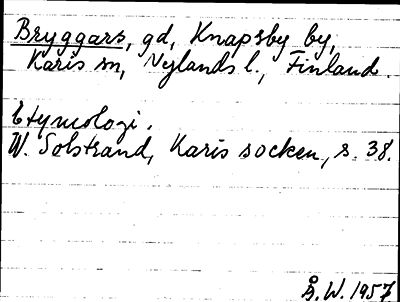 Bryggars, gd, Knapsby by,
Karis sn, Nylands l., Finland.
Etymologi.
W. Solstrand, Karis socken, s. 38.
Å. W. 1957